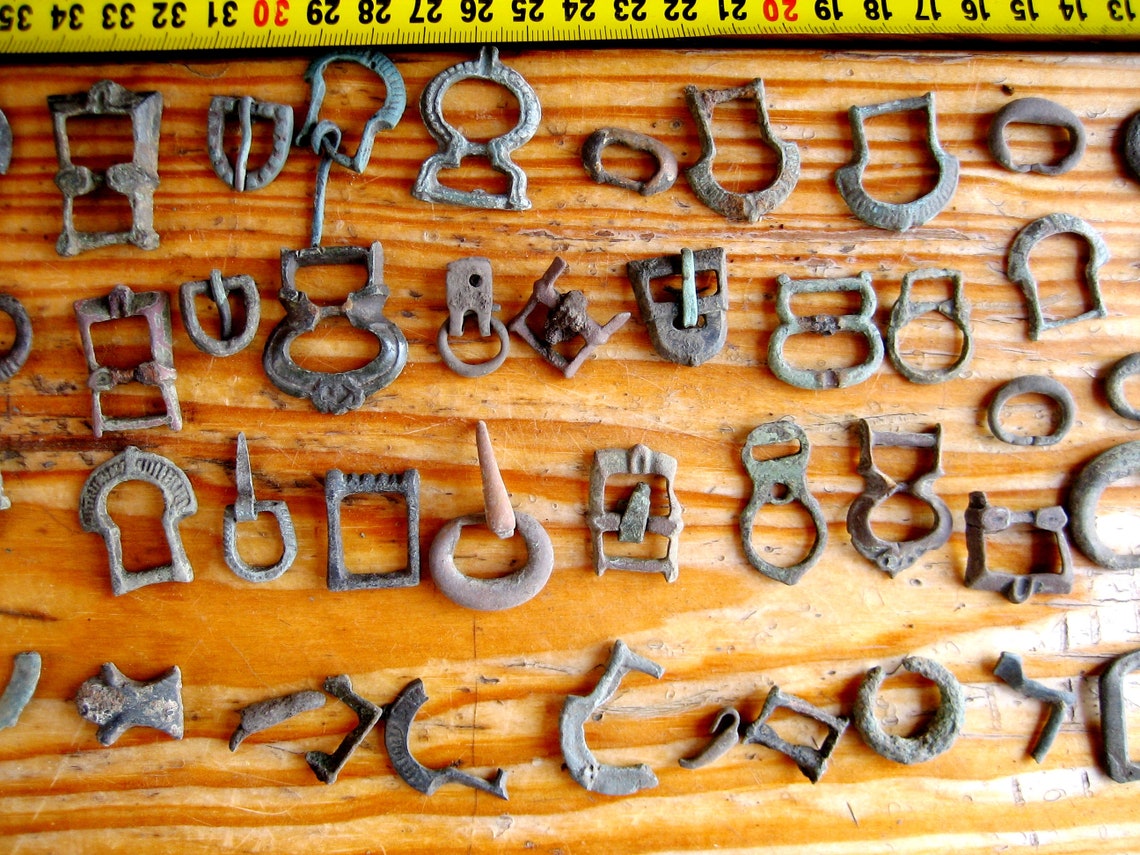 35 34 33 32 31 30 29 28 27 26 25 24 23 22 21 20 19 18 17 16 15 14 13